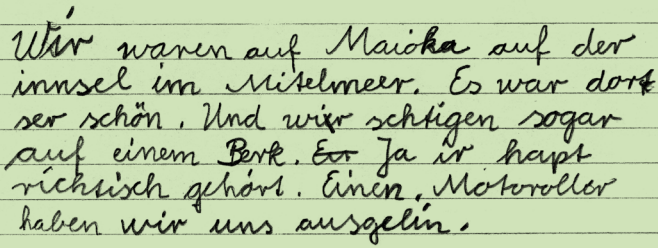 Wir waren auf Maioka auf der
innsel im Mitelmeer. Es war dort
ser schön. Und wir schtigen sogar
auf einem Berk. Ja ir hapt
richtisch gehört. Einen, Motoroller
haben wir uns ausgelin.